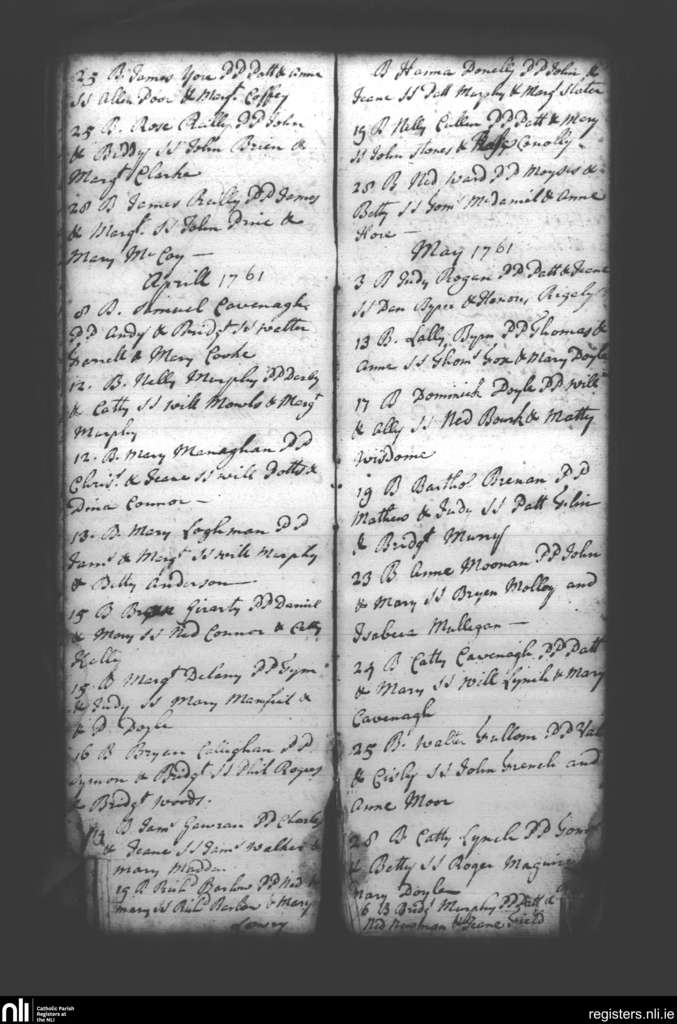 25 B. James Yore PP Patt & Anne
SS Allen Poor & Margt. Coffey
25 B. Rose Reilly PP John
& Biddy SS John Brien &
Margt Clarke
28 B James Reilly PP James
& Margt. SS John Prine &
Mary McCoy —
Aprill 1761
8 B. Simuel Cavenagh
PP Andy & Bridgt SS Walter
Ferrell & Mary Cooke
12. B. Nelly Murphy PP Darby
& Catty SS Will Mowls & Margt
Murphy
12. B. Mary Managhan PP
Chrisr. & Jeane SS Will Potts &
Dina Connor —
13. B. Mary Loghman PP
Jams & Margt SS Will Murphy
& Betty Anderson —
15 B Girarty PP Daniel
& Mary SS Ned Connor & Catty
Kelly
15. B Margt Delany PP Sym
& Judy SS Mary Manfiel &
& P. Doyle
16 B Bryen Callaghan PP
Symon & Bridgt SS Phil Rogers
& Bridgt Woods.
B Jams Gawran PP Charles
& Jeane SS Jams Walker &
Mary Madden
19 B Richd Barlow PP Ned &
Mary SS Richd Barlow & Mary
Lowry
B Hanna Donelly PP John &
Jeane SS Patt Murphy & Margt Slater
19 B Nelly Cullen PP Patt & Mary
SS John Stones & Rose Conolly
28 B Ned Ward PP Moyses &
Betty SS Toms McDaniel & Anne
Hore —
May 1761
3 B Judy Rogan PP Patt & Jeane
SS Dan Byrn & Honor Rigely
13 B. Lally Byrn PP Thomas &
Anne SS Thoms Fox & Mary Doyle
17 B Dominick Doyle PP Willm
& Ally SS Ned Bourk & Matty
Wisdome
19 B Bartho Brenan PP
Mathew & Judy SS Patt
& Bridgt Murry
23 B Anne Moonan PP John
& Mary SS Bryen Molloy and
Isabera Mulligan —
24 B Catty Cavenagh PP Patt
& Mary SS Will Lynch & Mary
Cavenagh
25 B. Walter Fullom PP Val
& Cisly SS John French and
Anne Moor
28 B Catty Lynch PP
& Betty SS Roger Maguire
Mary Doyle
6 B Bridgt Murphy PP Patt &
Ned Newman & Jeane Field
nli
Catholic Parish
Registers at
the NLI
registers.nli.ie